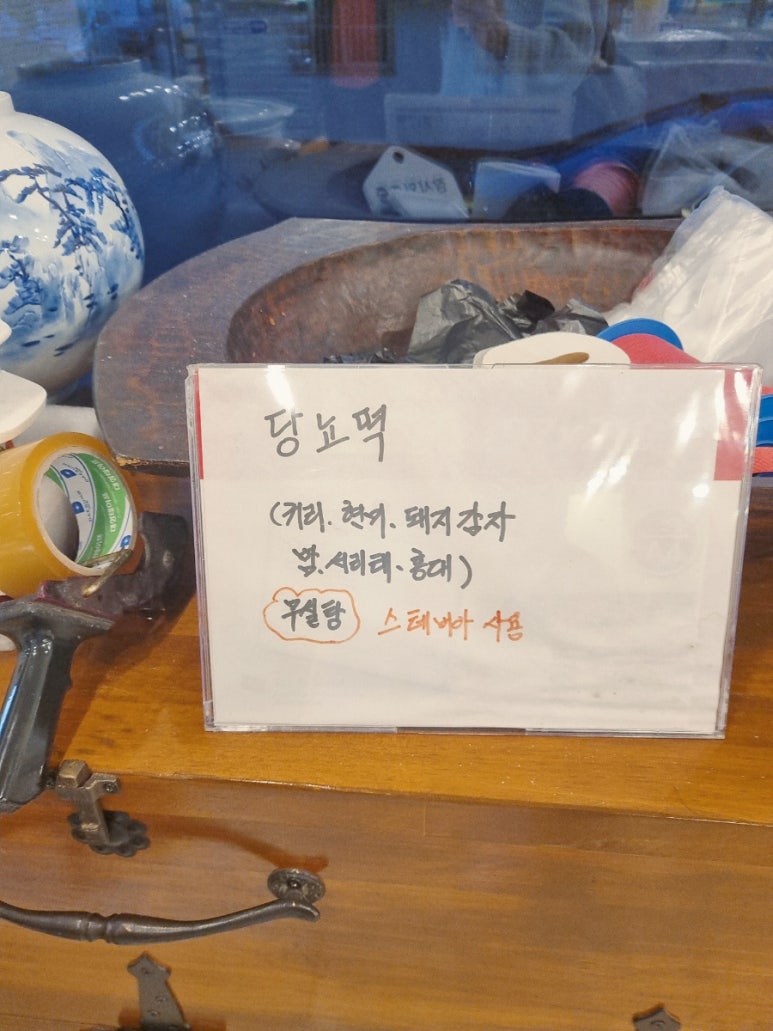 당뇨떡
(귀리. 현미. 돼지감자
밤. 서리태. 홍대)
무설탕 스테비아 사용